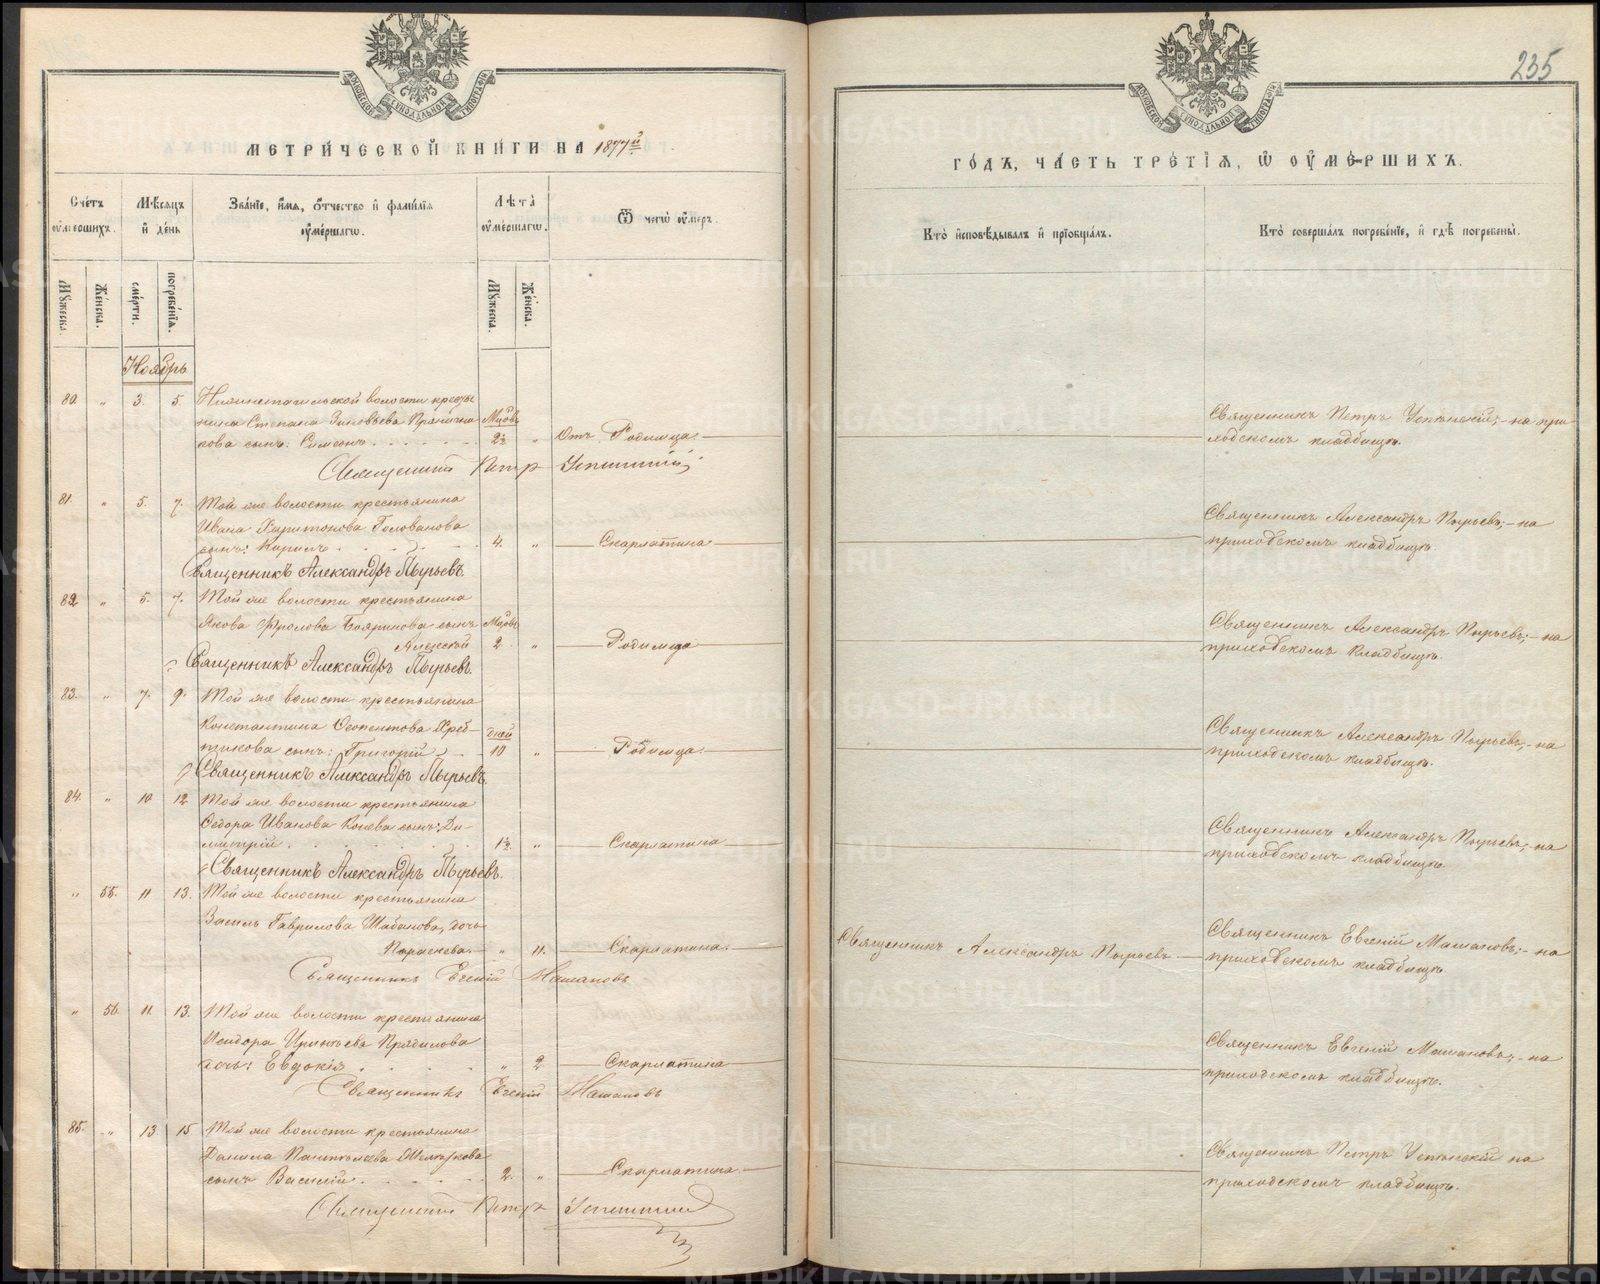 МЕТРИЧЕСКОЙ КНИГИ НА 1877й
Счетъ оумершихъ.
Мѣсяцъ и день
Званіе, имя, отчество и фамилія оумершагѡ.
Лѣта оумершагѡ.
Ѿ чегѡ оумеръ.
Мужеска.
Женска.
смерти.
погребенія.
Мужеска.
Женска.
Ноябрь
80. " 3. 5. Нижнетагильской волости крестья-
нина Степана Зиновьева Прянични- Мцовъ
кова сынъ: Симеонъ 2½ " Отъ Родимца.
Священникъ Петръ Успенскій
81. " 5. 7. Той же волости крестьянина
Ивана Харитонова Голованова
сынъ: Кирилъ 4. " Скарлатина
Священникъ Александръ Пырьевъ.
82 " 5. 7. Той же волости крестьянина
Якова Фролова Бояринова сынъ Мцовъ
Алексѣй 2 " Родимца
Священникъ Александръ Пырьевъ.
83. " 7. 9. Той же волости крестьянина
Константина Феопентова Хреб- дней
тикова сынъ: Григорій 10 " Родимца.
Священникъ Александръ Пырьевъ.
84. " 10. 12 Той же волости крестьянина
Ѳедора Иванова Конева сынъ: Ди-
митрій 1½ " Скарлатина
Священникъ Александръ Пырьевъ.
" 55. 11 13. Той же волости крестьянина
Василья Гаврилова Шабанова, дочь
Параскева. " 11. Скарлатина.
Священникъ Евгеній Машановъ
" 56. 11. 13. Той же волости крестьянина
Исидора Прядилова
дочь: Евдокія " 2 Скарлатина
Священникъ Евгеній Машановъ
85. " 13 15 Той же волости крестьянина
Данила Пантелеева Желтякова
сынъ Василій 2. " Скарлатина.
Священникъ Петръ Успенскій
235
ГОДЪ, ЧАСТЬ ТРЕТІЯ, Ѡ ОУМЕРШИХЪ.
Кто исповѣдывалъ и пріобщалъ.
Кто совершалъ погребеніе, и гдѣ погребены.
Священникъ Петръ Успенскій; - на при
ходскомъ кладбищѣ.
Священникъ Александръ Пырьевъ; - на
приходскомъ кладбищѣ.
Священникъ Александръ Пырьевъ; - на
приходскомъ кладбищѣ.
Священникъ Александръ Пырьевъ; - на
приходскомъ кладбищѣ.
Священникъ Александръ Пырьевъ; - на
приходскомъ кладбищѣ.
Священникъ Александръ Пырьевъ
Священникъ Евгеній Машановъ; - на
приходскомъ кладбищѣ
Священникъ Евгеній Машановъ; - на
приходскомъ кладбищѣ.
Священникъ Петръ Успенскій на
приходскомъ кладбищѣ.
METRIKI.GASO-URAL.RU